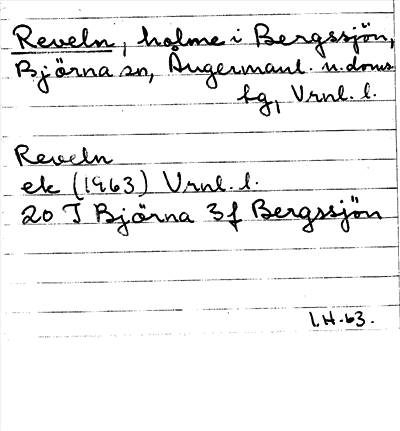 Reveln, holme i Bergssjön,
Björna sn, Ångermanl. n. doms
hg, Vrnl. l.
Reveln
ek (1963) Vrnl. l.
20 J Björna 3f Bergssjön
I.H.-63.